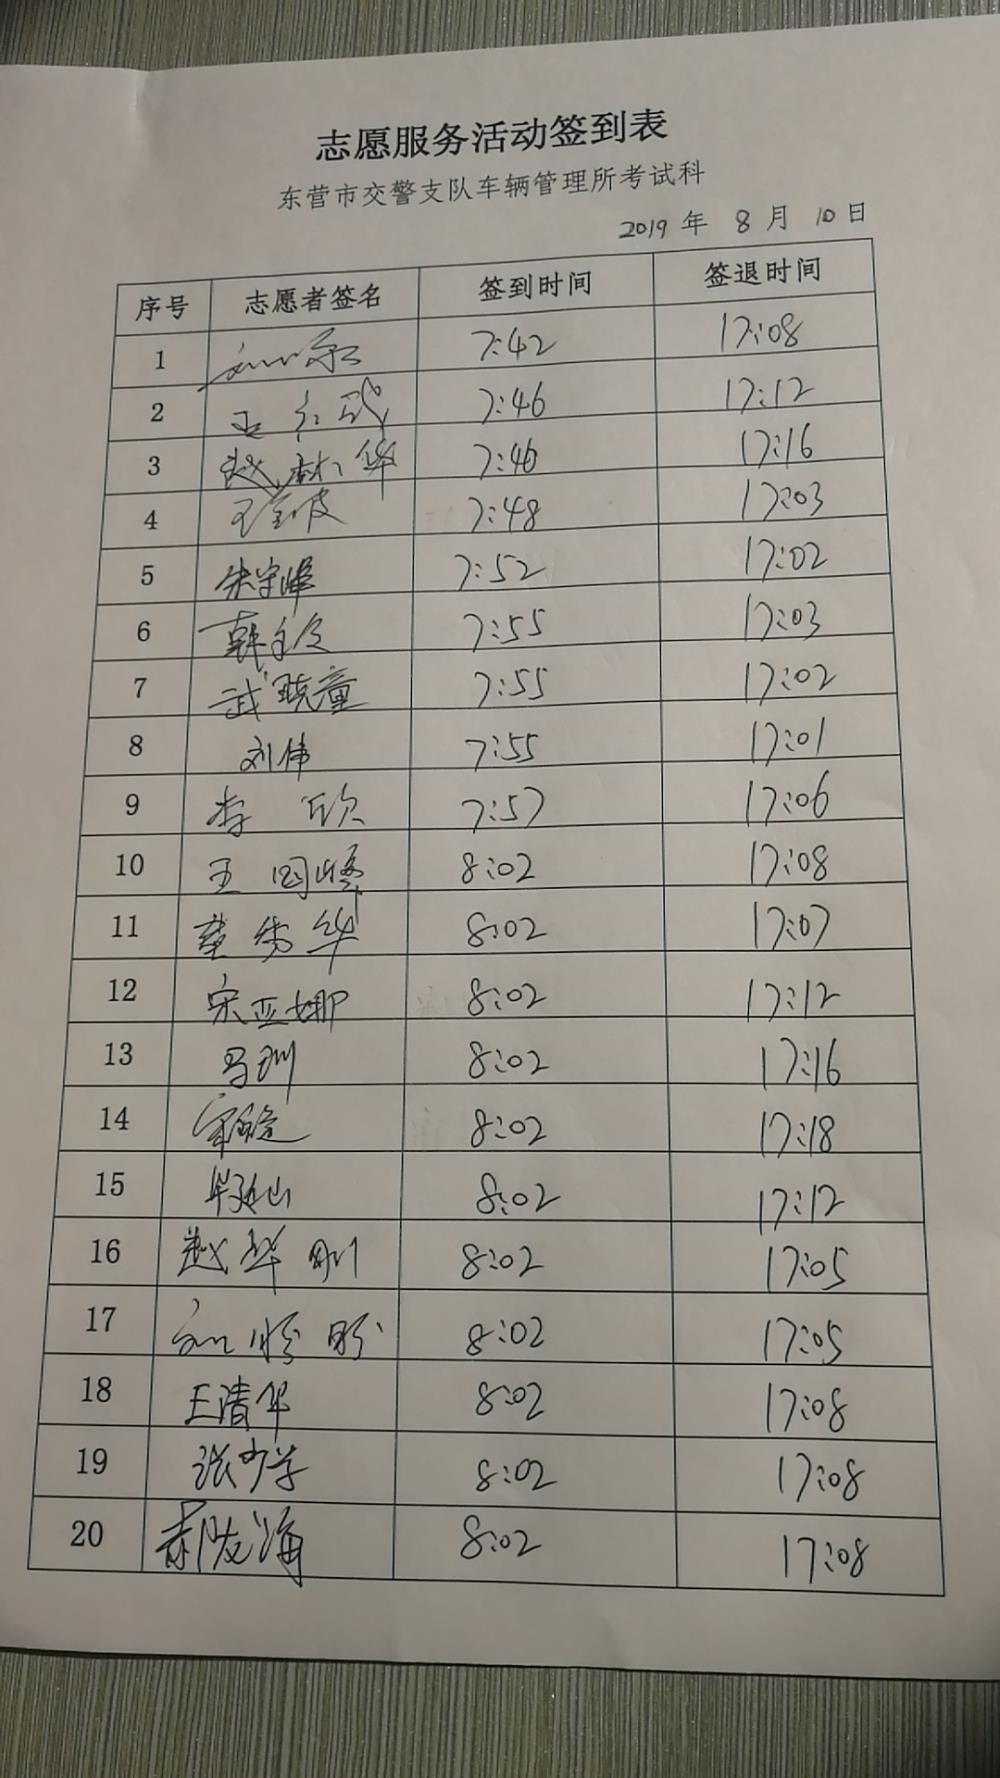 志愿服务活动签到表
东营市交警支队车辆管理所考试科
2019 年 8 月 10 日
序号 志愿者签名 签到时间 签退时间
1 7:42 17:08
2 王 7:46 17:12
3 赵林华 7:46 17:16
4 王 7:48 17:03
5 朱守峰 7:52 17:02
6 韩 7:55 17:03
7 武晓童 7:55 17:02
8 刘伟 7:55 17:01
9 李欣 7:57 17:06
10 王国峰 8:02 17:08
11 董秀华 8:02 17:07
12 宋亚娜 8:02 17:12
13 马玔 8:02 17:16
14 8:02 17:18
15 毕延山 8:02 17:12
16 赵华刚 8:02 17:05
17 刘盼盼 8:02 17:05
18 王清华 8:02 17:08
19 张少学 8:02 17:08
20 8:02 17:08